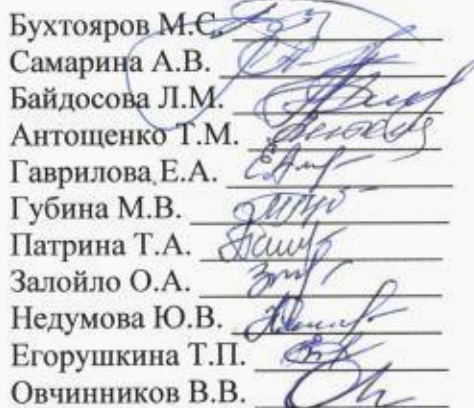 Бухтояров М.С.
Самарина А.В.
Байдосова Л.М.
Антощенко Т.М.
Гаврилова Е.А.
Губина М.В.
Патрина Т.А.
Залойло О.А.
Недумова Ю.В.
Егорушкина Т.П.
Овчинников В.В.